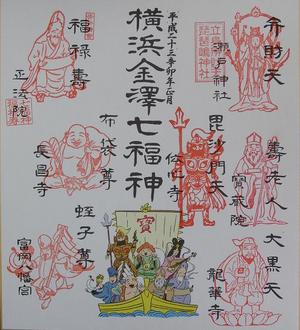 平成二十三辛卯年正月
横浜金澤七福神
弁財天
瀬戸神社
立島
琵琶嶋神社
壽老人
寶蔵院
大黒天
龍華寺
毘沙門天
伝心寺
福禄壽
正法院
布袋尊
長昌寺
蛭子尊
富岡八幡宮
寶